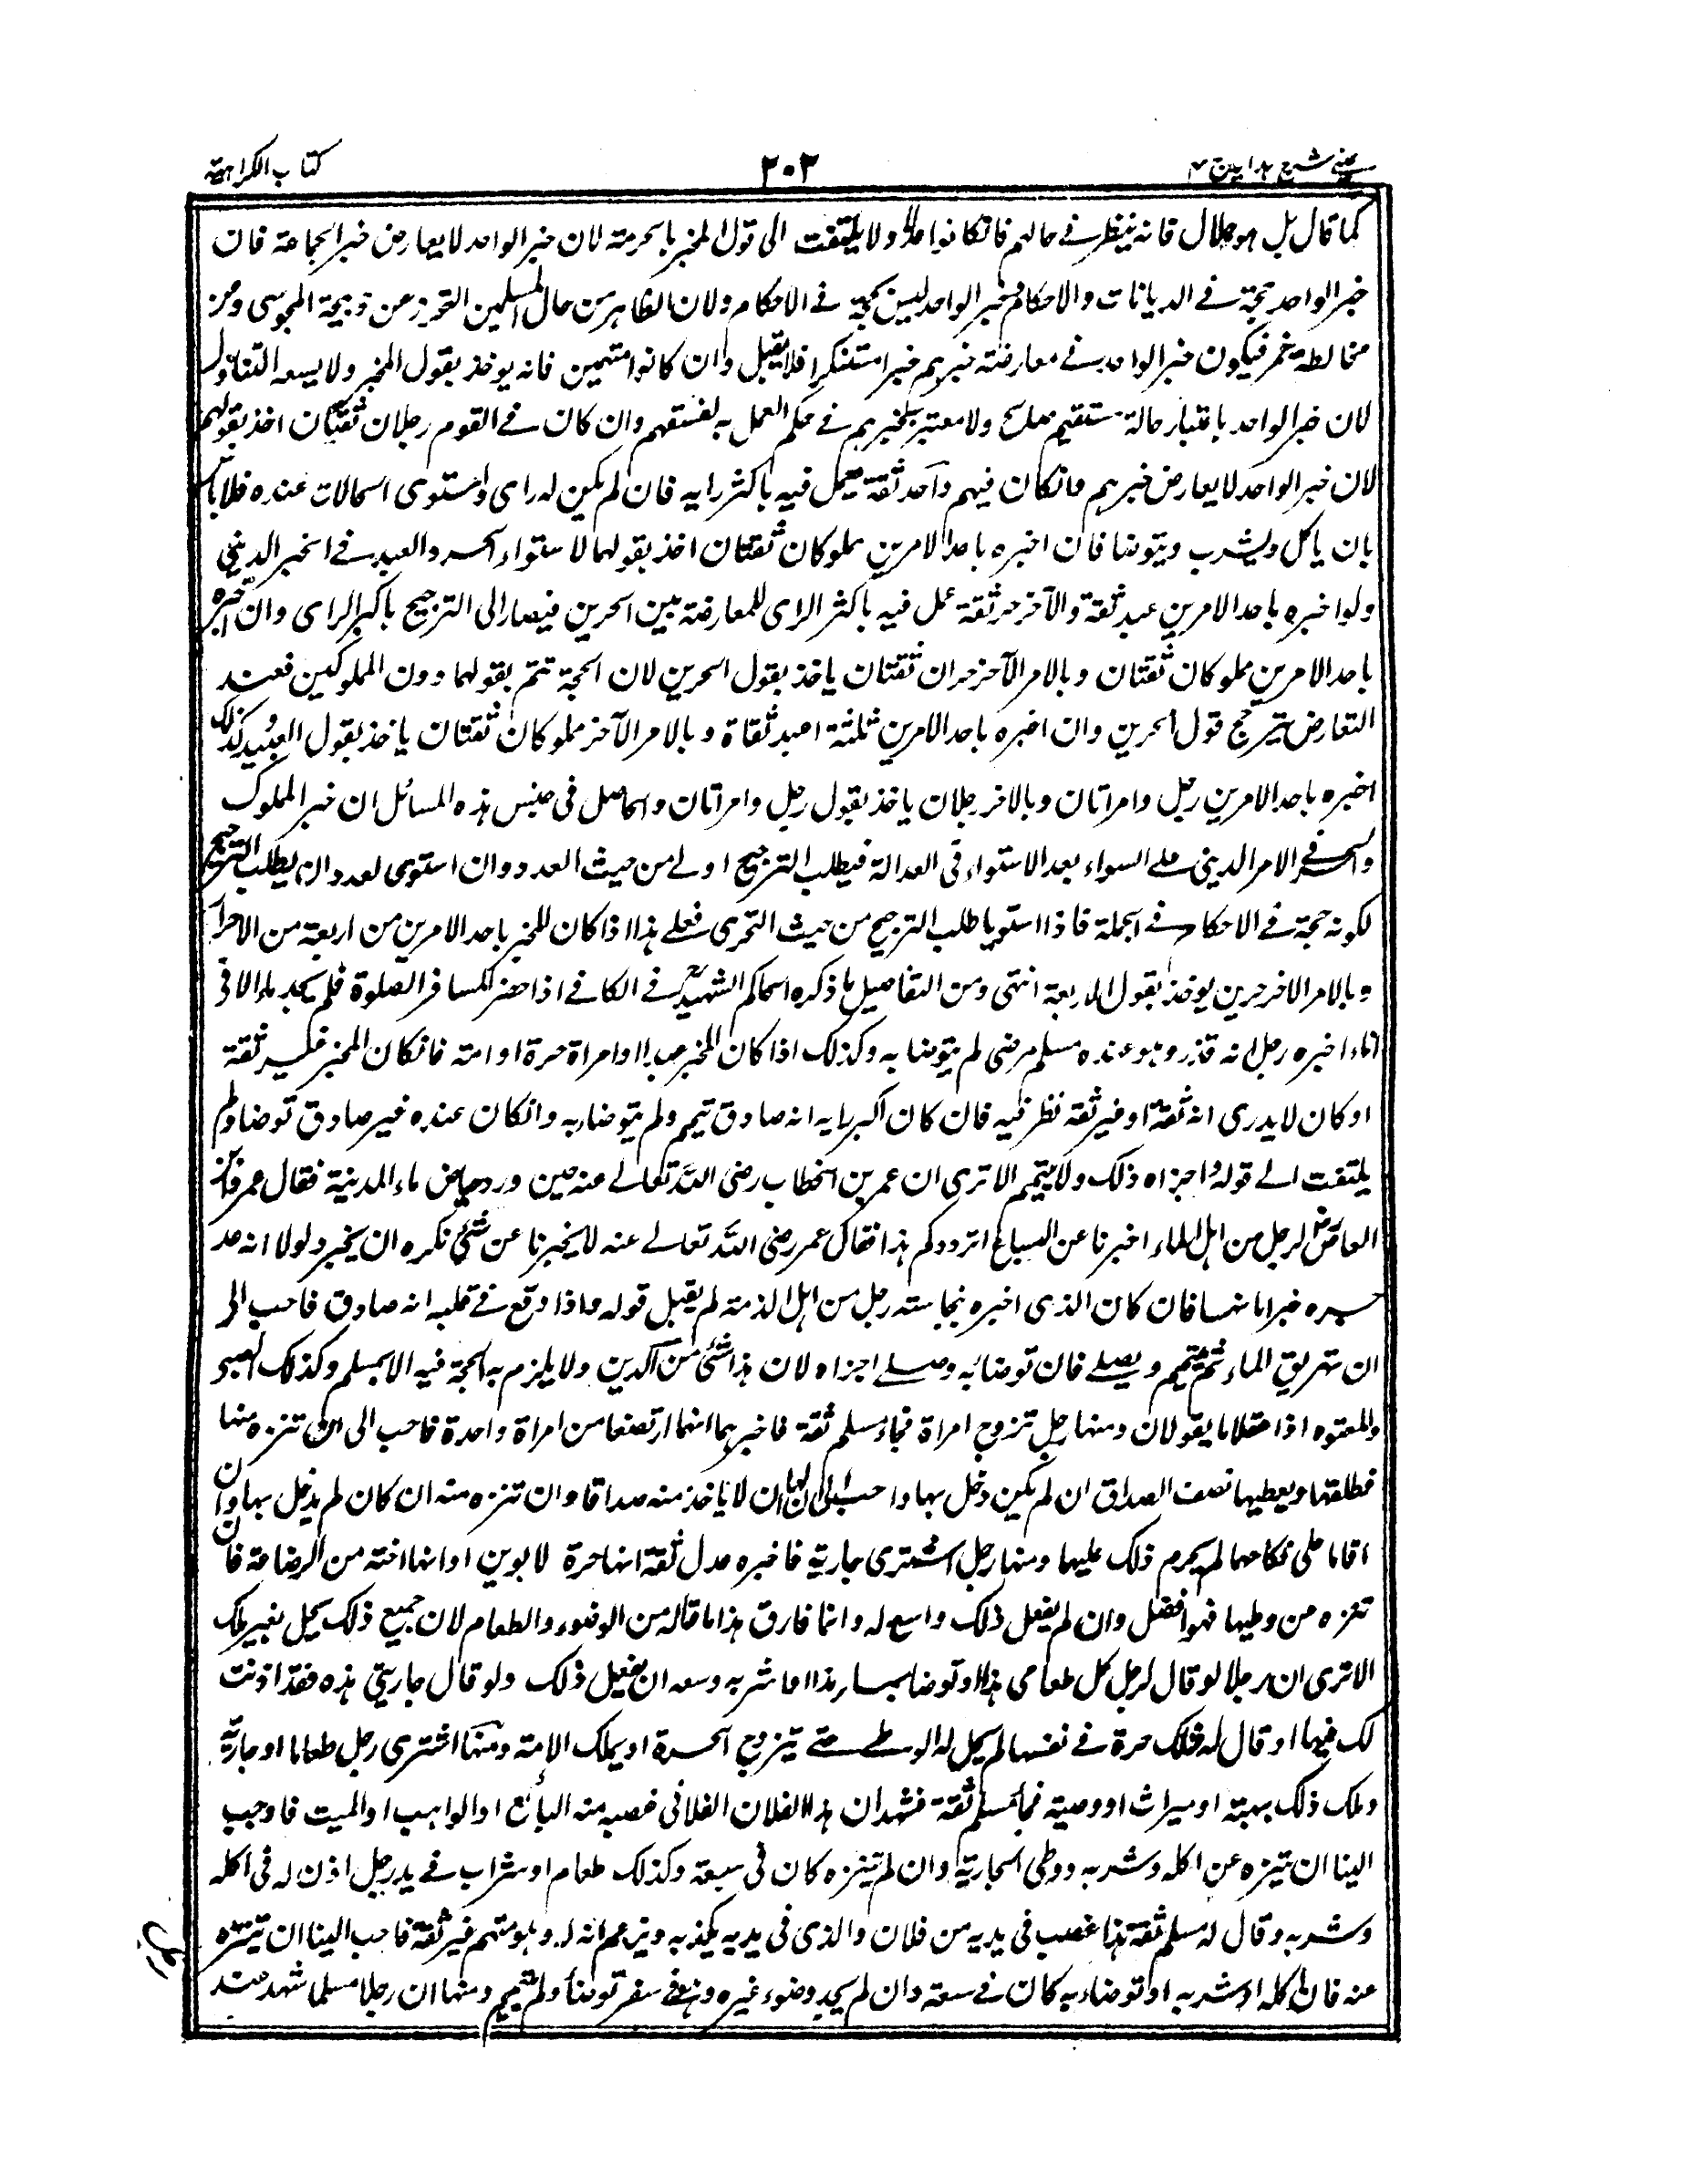 عينى شرح هدايه ج ٤
٢٠٣
كتاب الكراهية
كما قال بل هو حلال فانه ينظر فى حالهم فانكانوا عدولا ولا يلتفت الى قول المخبر بالحرمة لان خبر الواحد لا يعارض خبر الجماعة فان
خبر الواحد حجة فى الديانات والاحكام وخبر الواحد ليس بحجة فى الاحكام ولان الظاهر من حال المسلمين التحرز عن ذبيحة المجوسى وعن
مخالطة خمر فيكون خبر الواحد فى معارضة خبرهم خبرا مستنكرا فلا يقبل وان كانوا متهمين فانه يوخذ بقول المخبر ولا يسعه التناول
لان خبر الواحد باعتبار حالة مستقيم صالح ولا معتبر بخبرهم فى حكم العمل به لفسقهم وان كان فى القوم رجلان ثقتان اخذ بقولهم
لان خبر الواحد لا يعارض خبرهم وانكان فيهم واحد ثقة يعمل فيه باكثر رايه فان لم يكن له راى واستوى الحالات عنده فلا باس
بان ياكل ويشرب ويتوضا فان اخبره باحد الامرين مملوكان ثقتان اخذ بقولهما لاستواء الحر والعبد فى الخبر الدينى
ولو اخبره باحد الامرين عبد ثقة والآخر حر ثقة عمل فيه باكثر الراى للمعارضة بين الحرين فيصار الى الترجيح باكبر الراى وان اخبره
باحد الامرين مملوكان ثقتان وبالامر الآخر حران ثقتان ياخذ بقول الحرين لان الحجة تتم بقولهما دون المملوكين فعند
التعارض يترجح قول الحرين وان اخبره باحد الامرين ثلثة اعبد ثقاة وبالامر الآخر مملوكان ثقتان ياخذ بقول العبيد كذلك
اخبره باحد الامرين رجل وامراتان وبالاخر رجلان ياخذ بقول رجل وامراتان والحاصل فى جنس هذه المسائل ان خبر المملوك
والحر فى الامر الدينى على السواء بعد الاستواء فى العدالة فيطلب الترجيح اولى من حيث العدد وان استوى العددان يطلب الترجيح
لكونه حجة فى الاحكام فى الجملة فاذا استويا طلب الترجيح من حيث التحرى فعلى هذا اذا كان للخبر باحد الامرين من اربعة من الاحرار
وبالامر الاخر حرين يوخذ بقول الاربعة انتهى ومن التفاصيل ما ذكره الحاكم الشهيد فى الكافى اذا حضر المسافر الصلوة فلم يجد ماء الا فى
اناء اخبره رجل انه قذر وهو عنده مسلم مرضى لم يتوضا به وكذلك اذا كان المخبر عبدا او امراة حرة او امته فانكان المخبر غير ثقة
او كان لا يدرى انه ثقة او غير ثقه نظر فيه فان كان اكبر رايه انه صادق تيمم ولم يتوضا به وانكان عنده غير صادق توضا ولم
يلتفت الى قوله واجزاه ذلك ولا يتيمم الا ترى ان عمر بن الخطاب رضى الله تعالى عنه حين ورد حياض ماء المدينة فقال عمرو بن
العاص لرجل من اهل الماء اخبرنا عن السباع اتردكم هذا فقال عمر رضى الله تعالى عنه لا يخبرنا عن شئ نكره ان يخبر ولولا انه عد
خبره خبرا ما نهاه فان كان الذى اخبره بنجاسته رجل من اهل الذمة لم يقبل قوله واذا وقع فى قلبه انه صادق فاحب الى
ان تهريق الماء ثم يتيمم ويصلى فان توضا به وصلى اجزاه لان هذا شئ من الدين ولا يلزم به الحجة فيه الا بمسلم وكذلك الصبى
والمعتوه اذا عقلا ما يقولان ومنها رجل تزوج امراة فجاء مسلم ثقة فاخبرهما انهما ارتضعا من امراة واحدة فاحب الى ان تنزه منها
فطلقها ويعطيها نصف الصداق ان لم يكن دخل بها واحب الى لها ان لا ياخذ منه صداقا وان تنزه منه ان كان لم يدخل بها وان
اقاما على نكاحهما لم يحرم ذلك عليها ومنها رجل اشترى جارية فاخبره عدل ثقة انها حرة لابوين او انها اخته من الرضاعة فان
تنزه من وطيها فهو افضل وان لم يفعل ذلك واسع له وانما فارق هذا ما قاله من الوضوء والطعام لان جميع ذلك يحل بغير ملك
الا ترى ان رجلا لو قال لرجل كل طعامى هذا او توضا بماء هذا او ما شربه وسعه ان يفعل ذلك ولو قال جاريتى هذه فقد اذنت
لك فيها او قال له فلك حرة فى نفسها لم يحل له الوطى حتى يتزوج الحرة او يملك الامة ومنها اشترى رجل طعاما او جارية
وملك ذلك بهبة او ميراث او وصية فجاء مسلم ثقة فشهد ان هذا لفلان الفلانى غصبه منه البائع او الواهب او الميت فاوجب
الينا ان يتنزه عن اكله وشربه ووطى الجارية وان لم يتنزه كان فى سعة وكذلك طعام او شراب فى يد رجل اذن له فى اكله
وشربه وقال له مسلم ثقة هذا غصب فى يديه من فلان والذى فى يديه يكذبه ويزعم انه له وهو متهم غير ثقة فاحب الينا ان يتنزه
عنه فان اكله او شربه او توضاء به كان فى سعة وان لم يجد وضوء غيره وهو فى سفر توضأ ولم يتيمم ومنها ان رجلا مسلما شهد عند